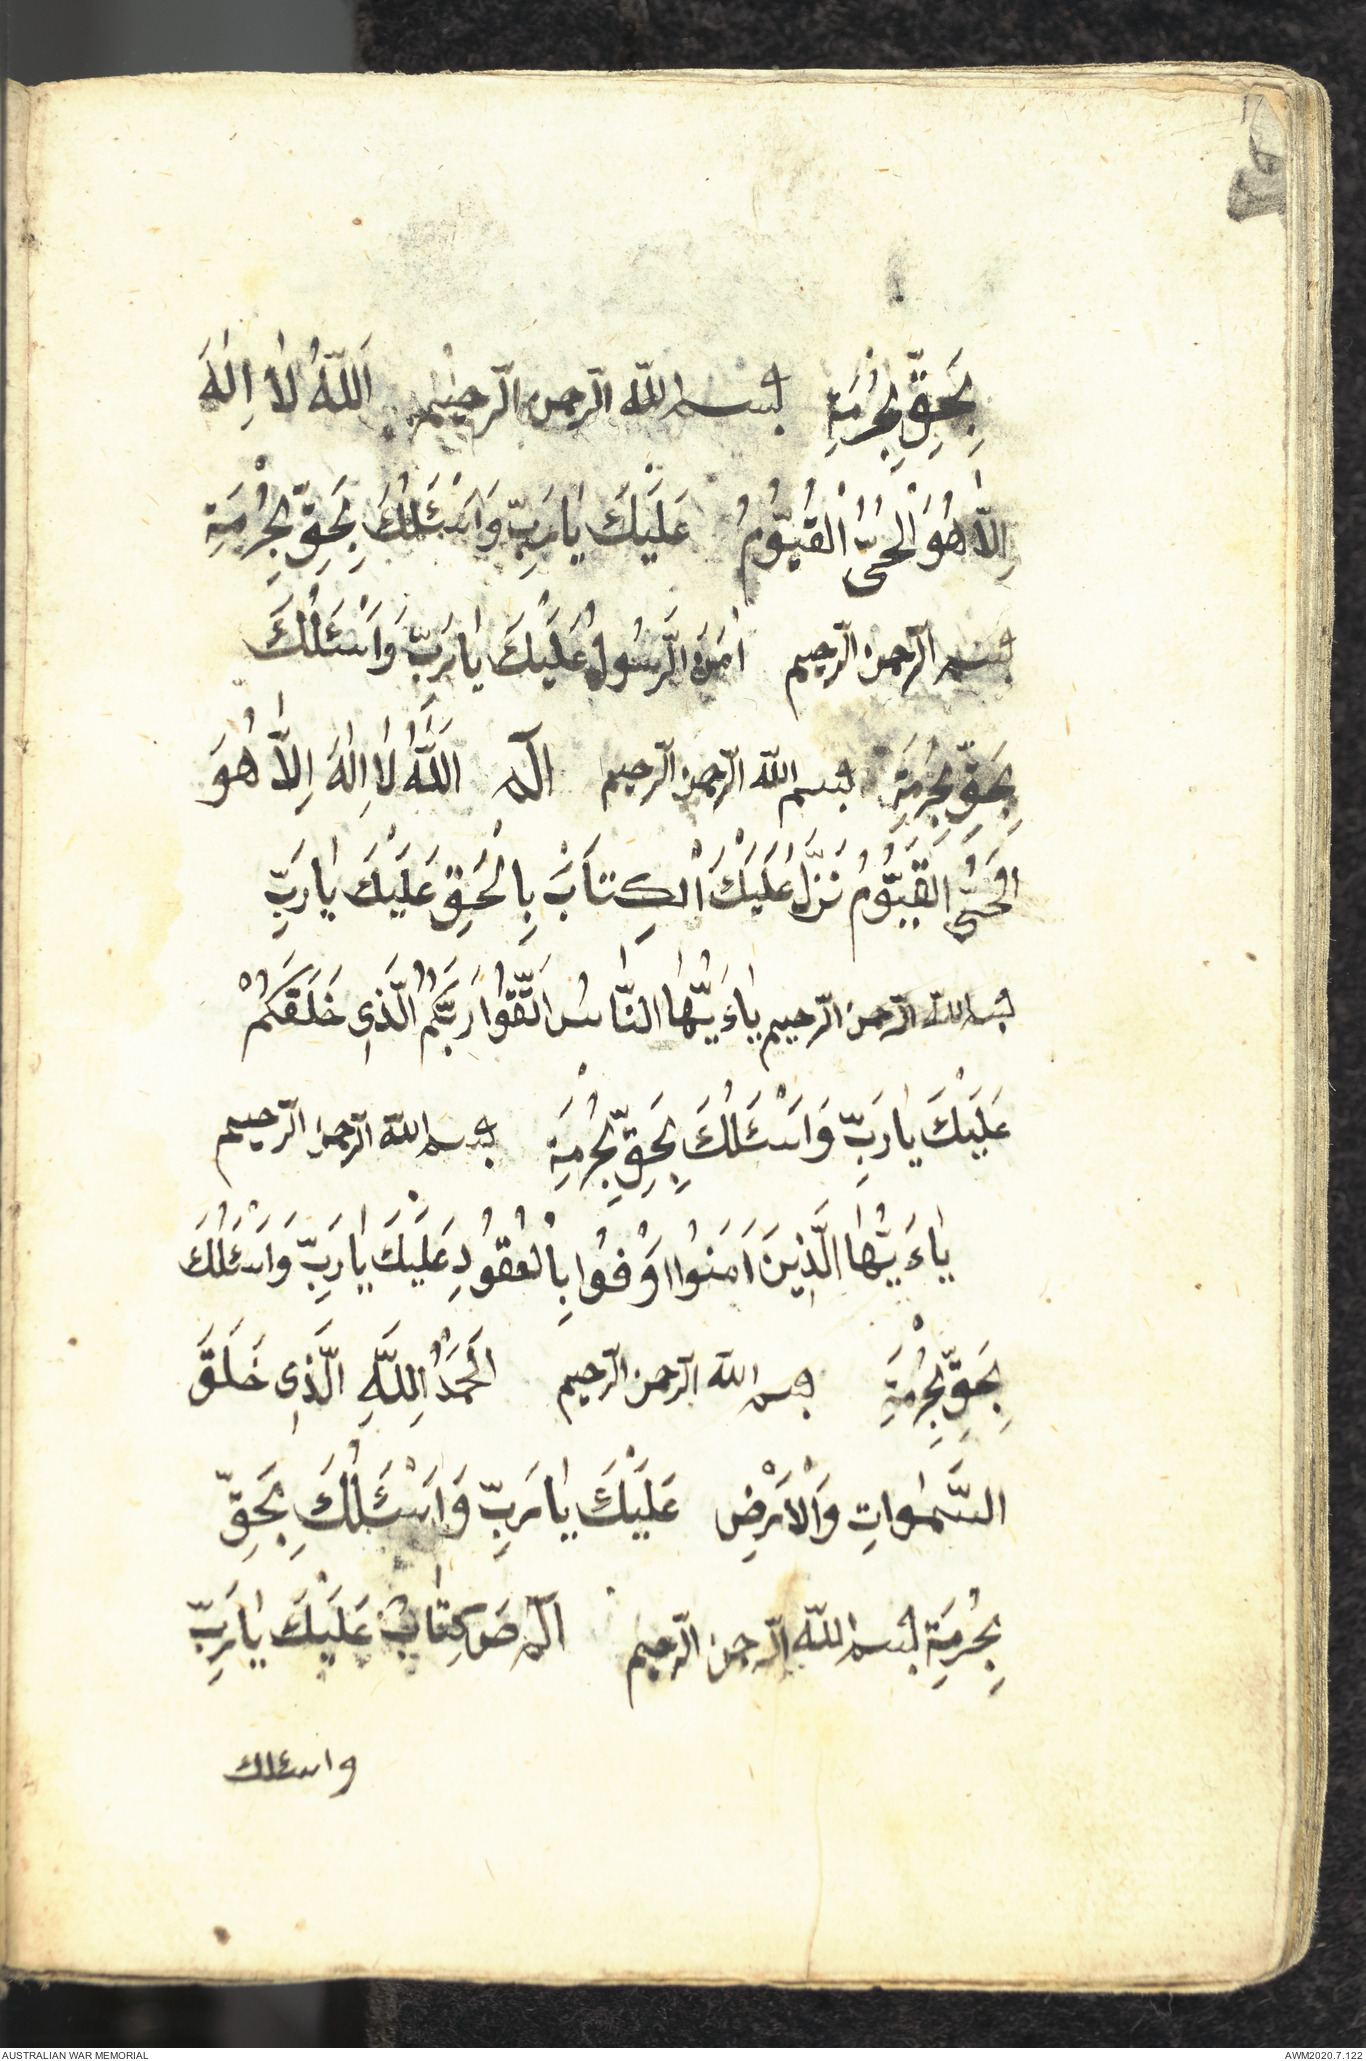 بِحَقِّ بِحُرْمَةِ بسم الله الرحمن الرحيم اَللّٰهُ لاٰ اِلٰهَ
اِلاّٰ هُوَ الْحَىُّ الْقَيُّومُ عَلَيْكَ يٰارَبِّ وَاَسْئَلُكَ بِحَقِّ بِحُرْمَةِ
بسم الرحمن الرحيم اٰمَنَ الرَّسُولُ عَلَيْكَ يٰارَبِّ وَاَسْئَلُكَ
بِحَقِّ بِحُرْمَةِ بسم الله الرحمن الرحيم الٓم اَللّٰهُ لاٰ اِلٰهَ اِلاّٰ هُوَ
الْحَىُّ الْقَيُّومُ نَزَّلَ عَلَيْكَ الْكِتاَبَ بِالْحَقِّ عَلَيْكَ يٰارَبِّ
بسم الله الرحمن الرحيم يٰاءَيُّهٰا النّٰاسُ اتَّقُوا رَبَّكُمُ الَّذِى خَلَقَكُمْ
عَلَيْكَ يٰارَبِّ وَاَسْئَلُكَ بِحَقِّ بِحُرْمَةِ بسم الله الرحمن الرحيم
يٰاءَيُّهٰا الَّذِينَ اَمَنُوا اوْفُوا بِالْعُقُودِ عَلَيْكَ يٰارَبِّ وَاَسْئَلُكَ
بِحَقِّ بِحُرْمَةِ بسم الله الرحمن الرحيم الْحَمْدُ لِلّٰهِ الَّذِى خَلَقَ
السَّمٰوٰاتِ وَالْاَرْضِ عَلَيْكَ يٰارَبِّ وَاَسْئَلُكَ بِحَقِّ
بِحُرْمَةِ بسم الله الرحمن الرحيم الٓمٓصَ كِتٰابٌ عَلَيْكَ يٰارَبِّ
واسئلك
AUSTRALIAN WAR MEMORIAL AWM2020.7.122